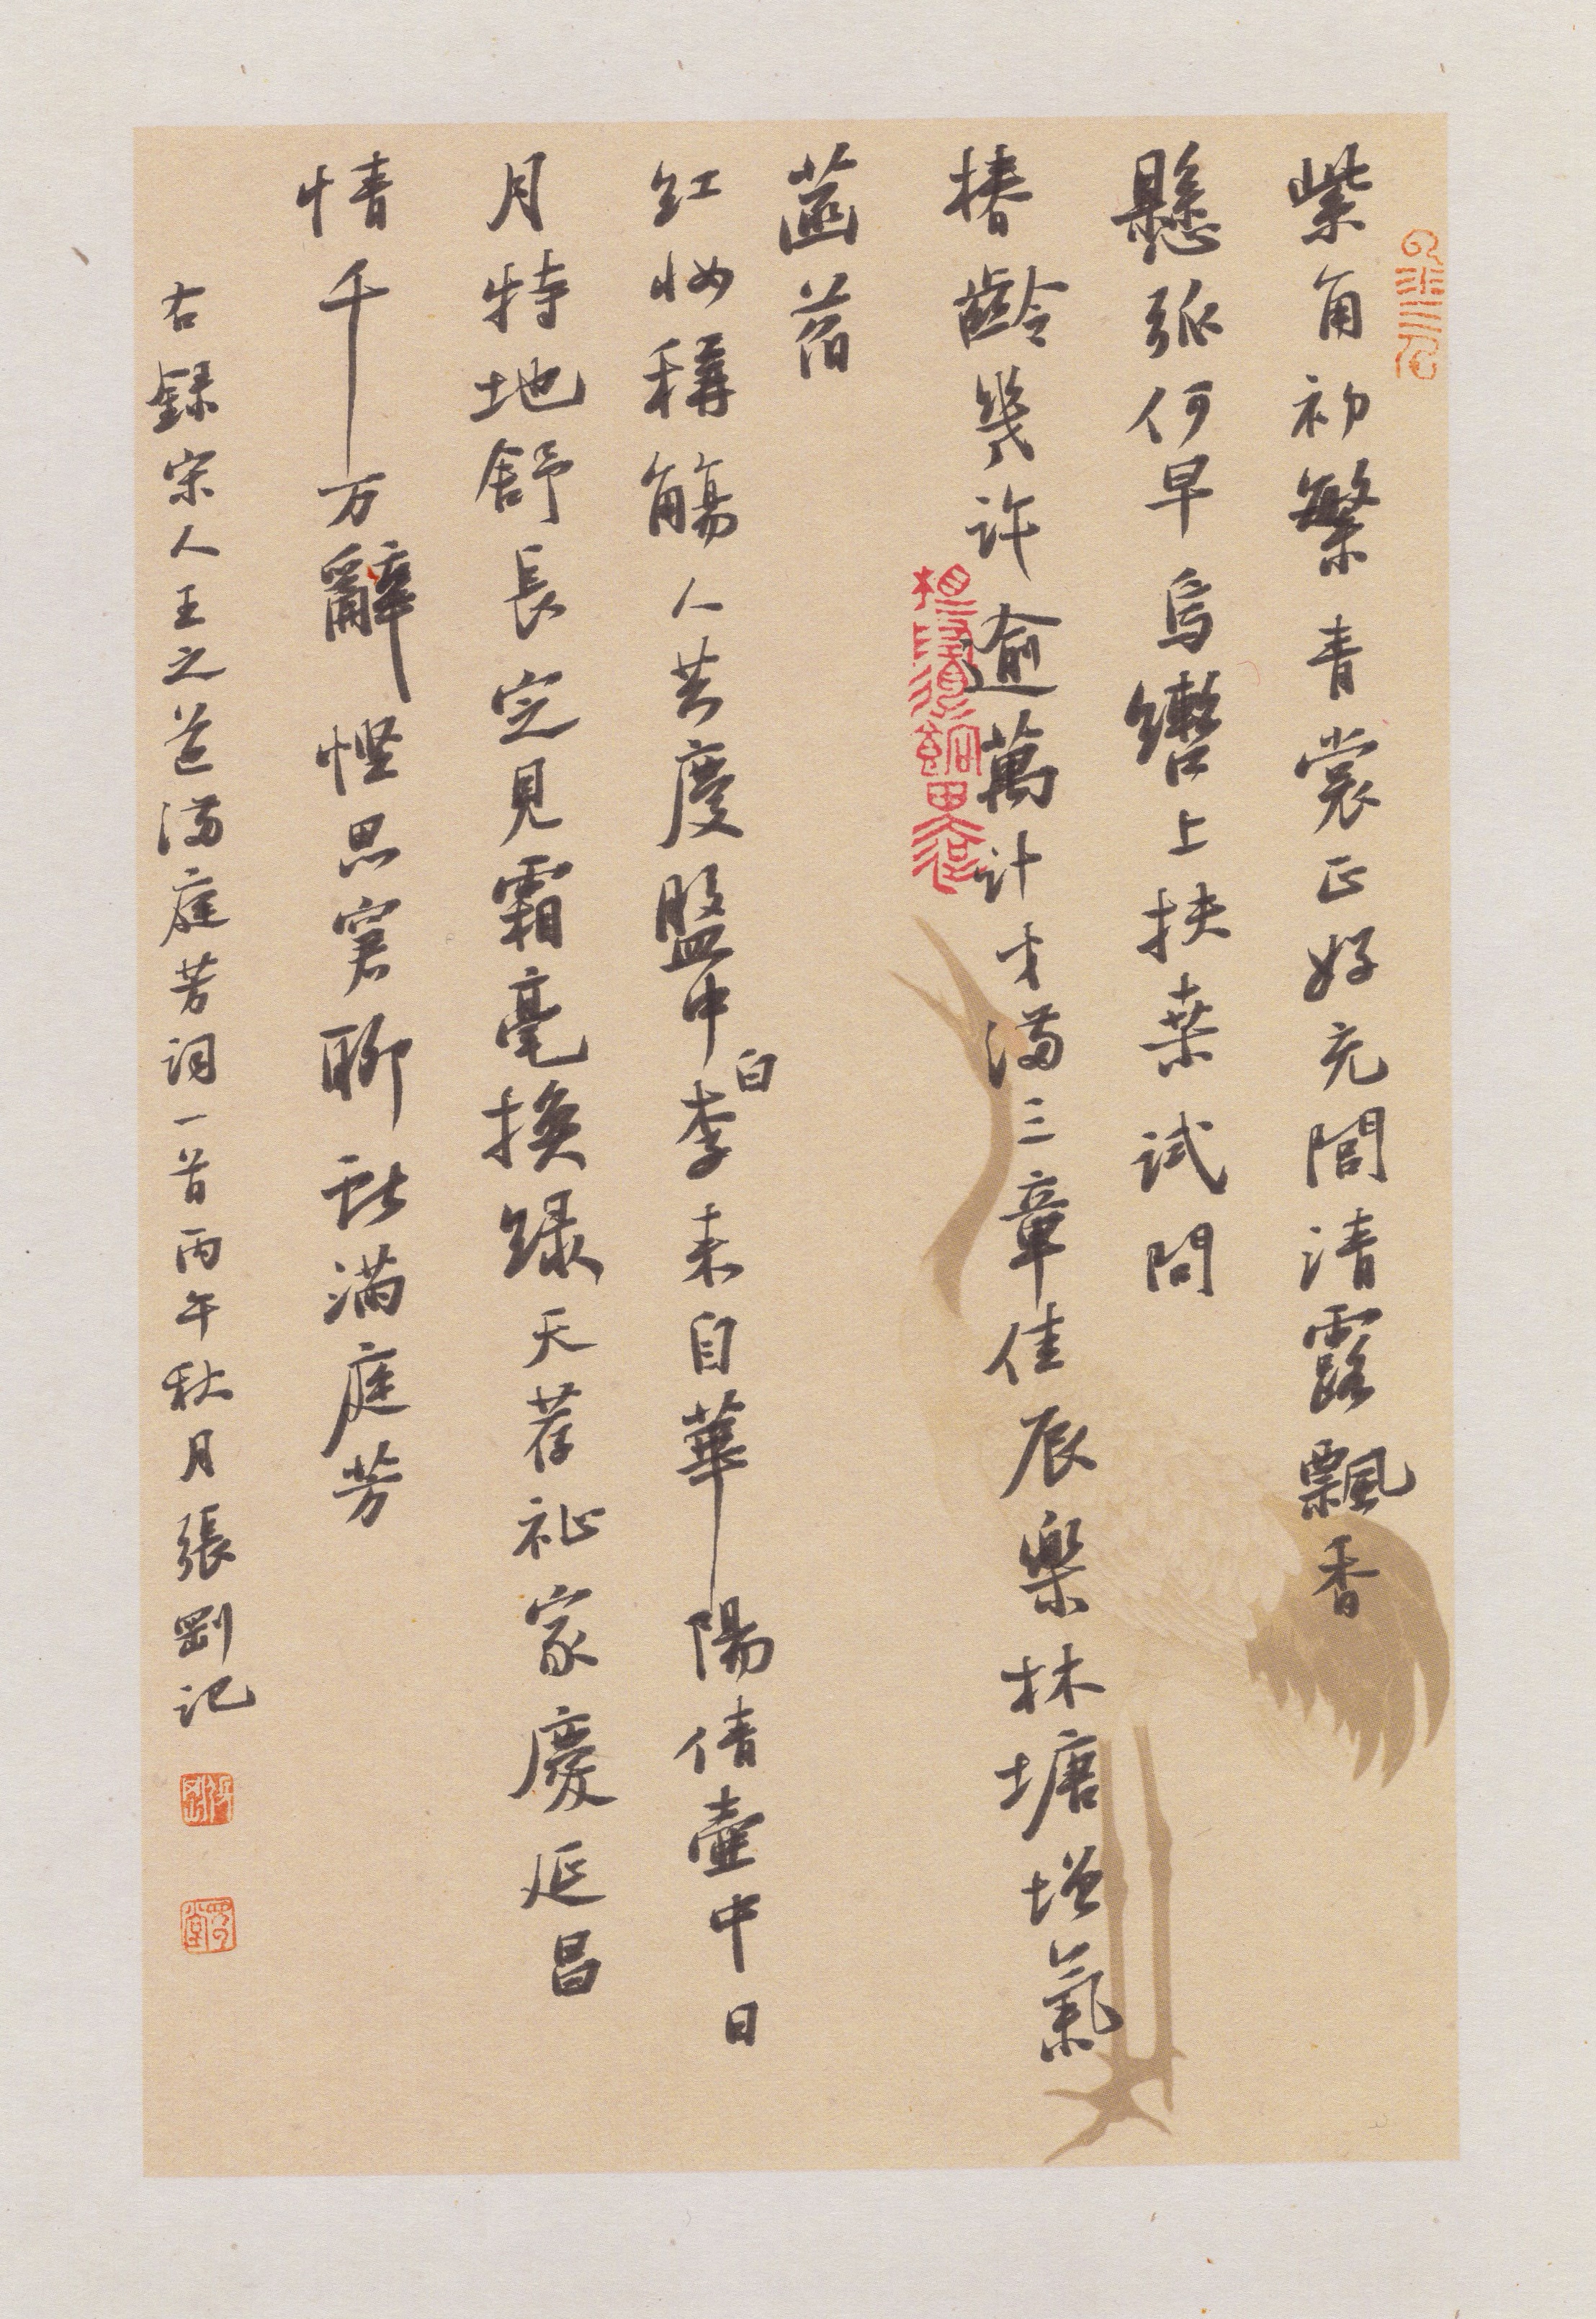 紫角初繁青裳正好充閭清露飄香
懸弧何早烏轡上扶桒試問
椿齡幾許逾萬計才滿三章佳辰樂林塘增氣
菡萏
紅妝稱觴人共慶盤中白李来自華陽倩壺中日
月特地舒長定見霜毫換綠天荐祉家慶延昌
情千万辭慳思窘聊献满庭芳
右録宋人王之道满庭芳词一首丙午秋月張剛记